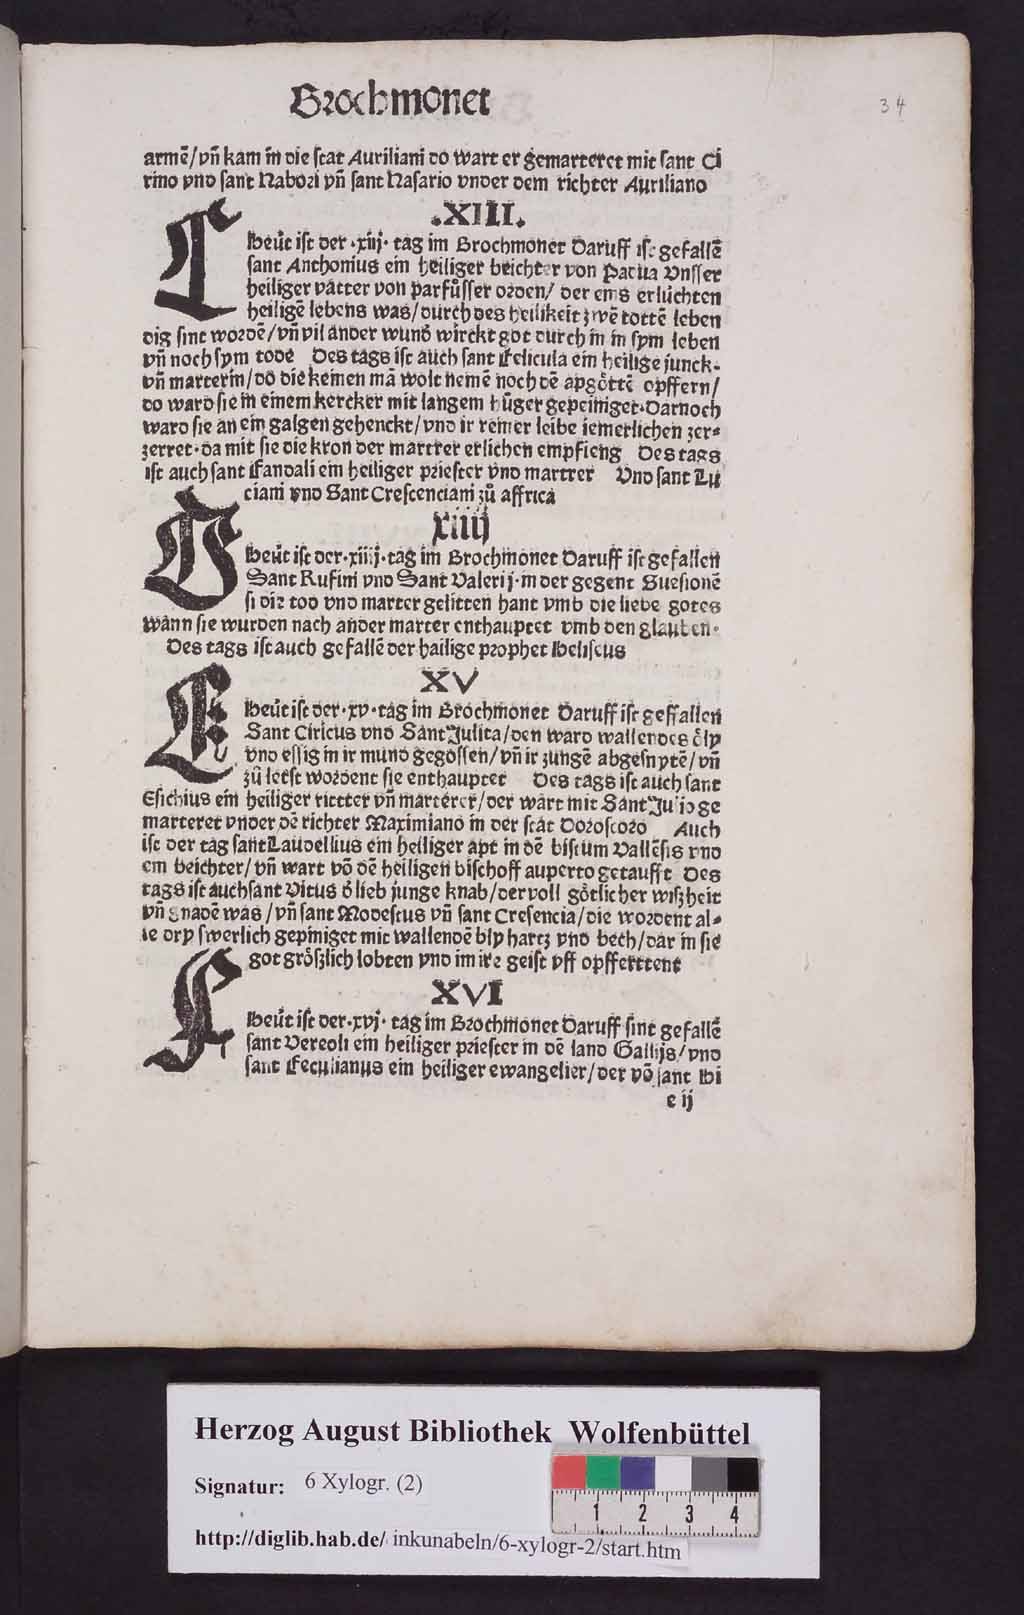 Brochmonet
34
armē/vñ kam in die stat Auriliani do wart er gemarteret mit sant Ci
rino vnd sant Nabori vñ sant Nasario vnder dem richter Auriliano
.XIII.
Heüt ist der ·xiij· tag im Brochmonet Daruff ist gefallē
sant Anthonius ein heiliger beichter von Padua Vnsser
heiliger vatter von parfůsser orden/ der eins erlüchten
heiligē lebens was/durch des heilikeit zwē tottē leben
dig sint wordē/vñ vil ander wund wirckt got durch in in sym leben
vñ noch sym tode Des tags ist auch sant Felicula ein heilige junck-
vñ marterin/do die keinen mā wolt nemē noch dē apgöttē opffern/
do ward sie in einem kercker mit langem hūger gepeiniget·Darnoch
ward sie an ein galgen gehenckt/vnd ir reiner leibe iemerlichen zer-
zerret·da mit sie die kron der martrer erlichen empfieng Des tags
ist auch sant Fandali ein heiliger priester vnd martrer Vnd sant Lu
ciani vnd Sant Crescenciani zů affrica
xiiij
Heüt ist der·xiiij·tag im Brochmonet Daruff ist gefallen
Sant Rufini vnd Sant Valerij·in der gegent Suesionē
si die tod vnd marter gelitten hant vmb die liebe gotes
wann sie wurden nach ander marter enthauptet vmb den glauben·
Des tags ist auch gefallē der hailige prophet Heliseus
XV
Heüt ist der·xv·tag im Brochmonet Daruff ist geffallen
Sant Ciricus vnd Sant Julita/den ward wallendes ölÿ
vnd essig in ir mund gegossen/vñ ir zungē abgesnytē/vñ
zů letst wordent sie enthauptet Des tags ist auch sant
Esichius ein heiliger ritter vñ marterer/der wart mit Sant Julio ge
marteret vnder dē richter Maximiano in der stat Doroscoro Auch
ist der tag sant Laudellius ein heiliger apt in dē bistum Vallēsis vnd
ein beichter/vñ wart vō dē heiligen bischoff auperto getaufft Des
tags ist auch sant Vitus d lieb junge knab/der voll götlicher wiszheit
vñ gnadē was/vñ sant Modestus vñ sant Cresencia/die wordent al-
le dry swerlich gepiniget mit wallendē bly hartz vnd bech/dar in sie
got gröszlich lobten vnd im ire geist vff opfferttent
XVI
Heüt ist der·xvj· tag im Brochmonet Daruff sint gefallē
sant Vereoli ein heiliger priester in dē land Gallijs/vnd
sant Feculianus ein heiliger ewangelier/der vō sant Hi
e ij
C
D
E
F
Herzog August Bibliothek Wolfenbüttel
Signatur: 6 Xylogr. (2)
1 2 3 4
http://diglib.hab.de/ inkunabeln/6-xylogr-2/start.htm